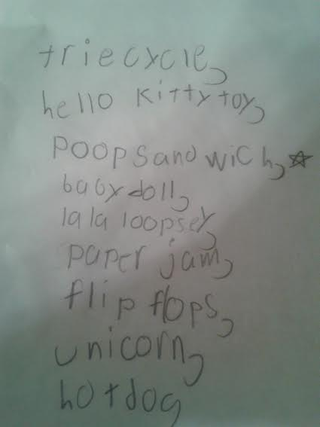 triecycle,
hello Kitty toy,
poop sandwich,☆
baby doll,
lala loopsey,
paper jam,
flip flops,
unicorn,
hotdog